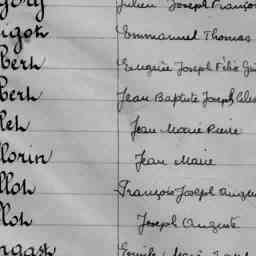 Julien Joseph François
igot Emmanuel Thomas
bert Eugène Joseph Félix
bert Jean Baptiste Joseph
let Jean Marie Pierre
lorin Jean Marie
llot François Joseph
llot Joseph Auguste